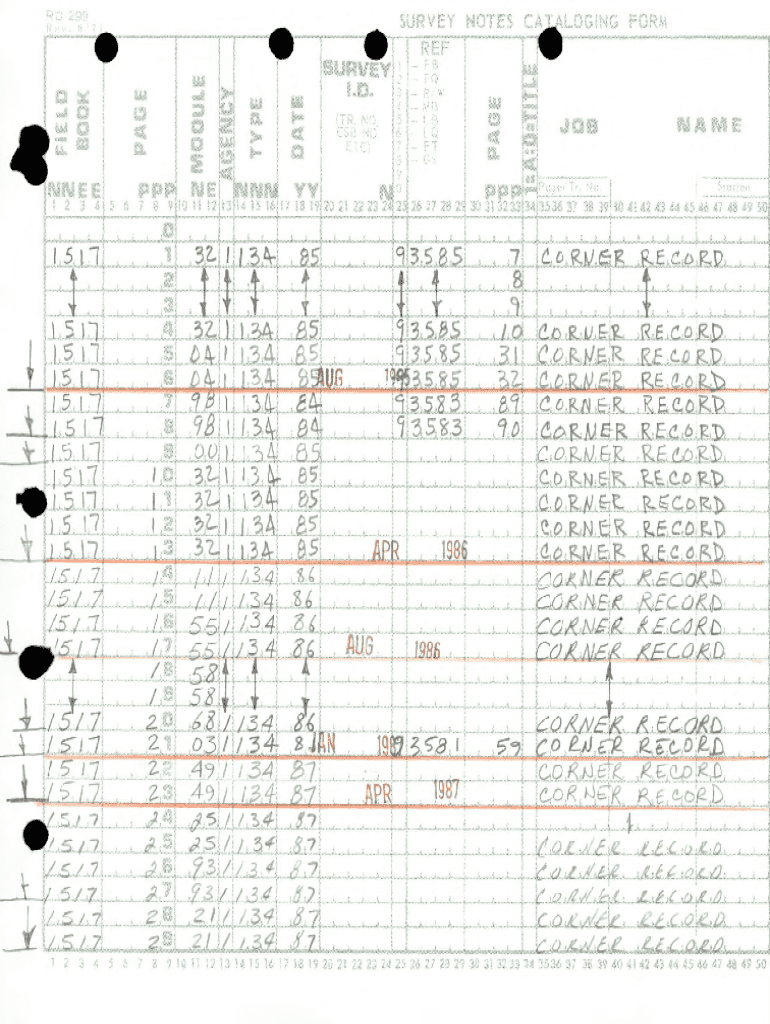 RD 299 SURVEY NOTES CATALOGING FORM
FIELD BOOK PAGE MODULE AGENCY TYPE DATE SURVEY I.D. (TR. NO. CSB NO. ETC) REF PAGE I=A:D=TITLE JOB NAME
Paper Tr. No. Station
NNEE PPP NE NNN YY N PPP
1 2 3 4 5 6 7 8 9 10 11 12 13 14 15 16 17 18 19 20 21 22 23 24 25 26 27 28 29 30 31 32 33 34 35 36 37 38 39 40 41 42 43 44 45 46 47 48 49 50
0
1517 1 32 1 134 85 93585 7 CORNER RECORD
2 8
3 9
1517 4 32 1 134 85 93585 10 CORNER RECORD
1517 5 04 1 134 85 93585 31 CORNER RECORD
1517 6 04 1 134 85 AUG 1985 93585 32 CORNER RECORD
1517 7 98 1 134 84 93583 89 CORNER RECORD
1517 8 98 1 134 84 93583 90 CORNER RECORD
1517 9 00 1 134 85 CORNER RECORD
1517 10 32 1 134 85 CORNER RECORD
1517 11 32 1 134 85 CORNER RECORD
1517 12 32 1 134 85 CORNER RECORD
1517 13 32 1 134 85 APR 1986 CORNER RECORD
1517 14 11 1 134 86 CORNER RECORD
1517 15 11 1 134 86 CORNER RECORD
1517 16 55 1 134 86 CORNER RECORD
1517 17 55 1 134 86 AUG 1986 CORNER RECORD
18 58
19 58
1517 20 68 1 134 86 CORNER RECORD
1517 21 03 1 134 8 JAN 1987 93581 59 CORNER RECORD
1517 22 49 1 134 87 CORNER RECORD
1517 23 49 1 134 87 APR 1987 CORNER RECORD
1517 24 25 1 134 87
1517 25 25 1 134 87 CORNER RECORD
1517 26 93 1 134 87 CORNER RECORD
1517 27 93 1 134 87 CORNER RECORD
1517 28 21 1 134 87 CORNER RECORD
1517 29 21 1 134 87 CORNER RECORD
1 2 3 4 5 6 7 8 9 10 11 12 13 14 15 16 17 18 19 20 21 22 23 24 25 26 27 28 29 30 31 32 33 34 35 36 37 38 39 40 41 42 43 44 45 46 47 48 49 50